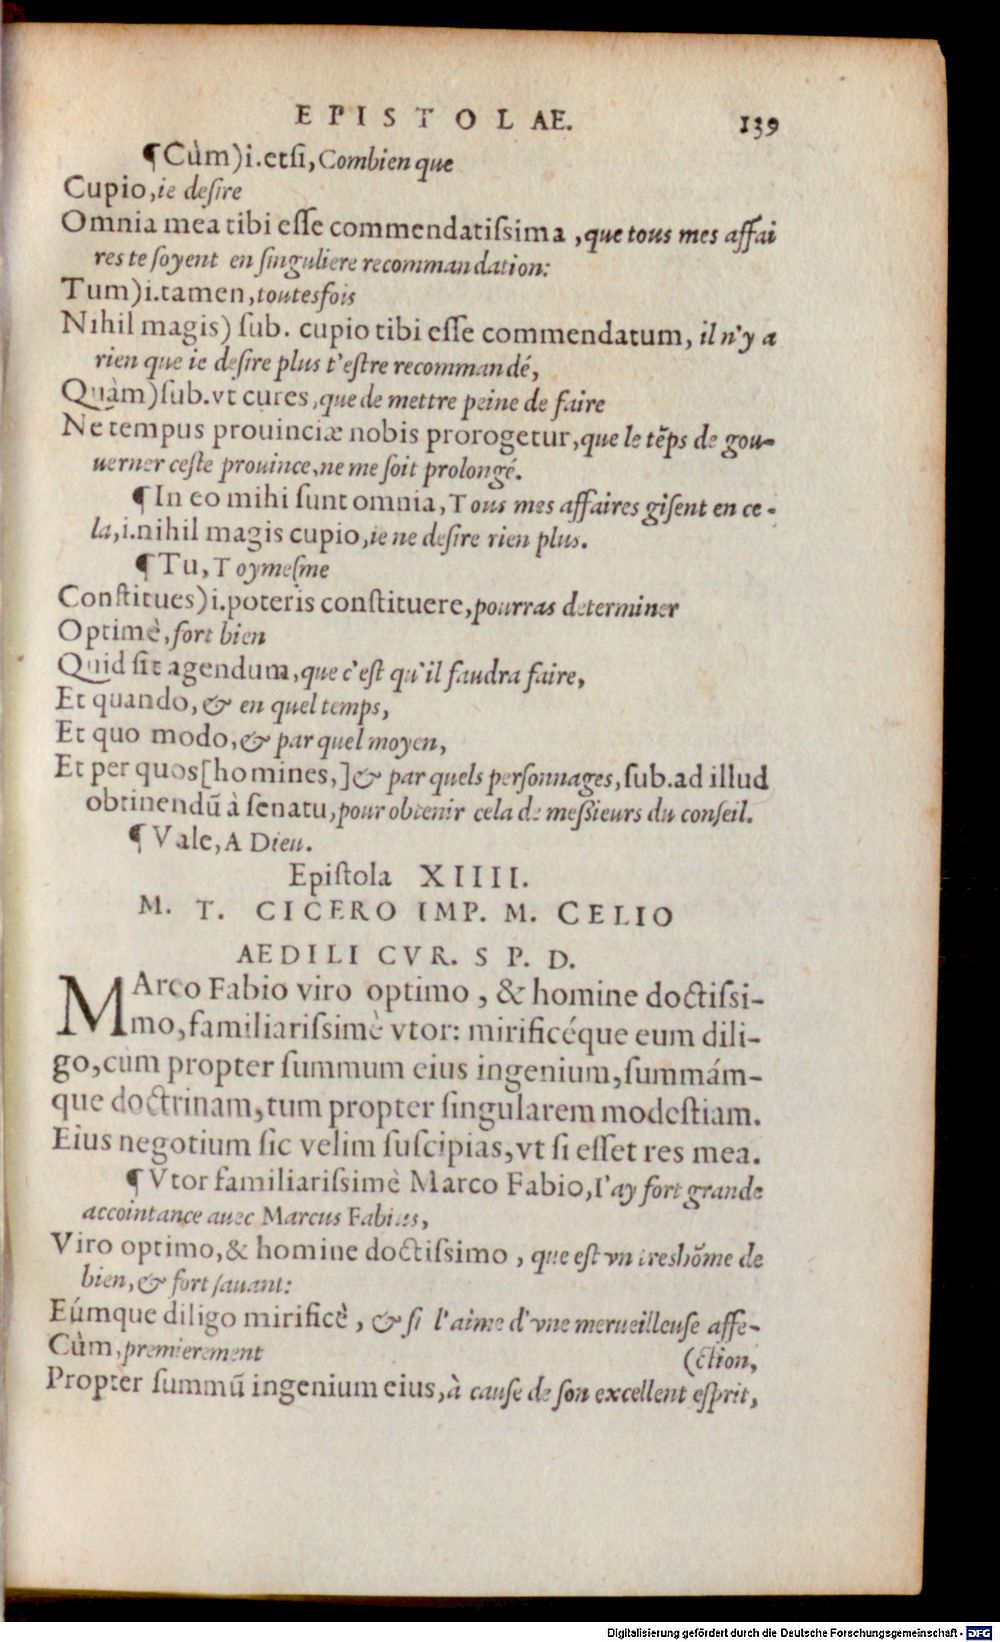 EPISTOLAE. 139
¶Cùm)i.etſi, Combien que
Cupio, ie deſire
Omnia mea tibi eſſe commendatiſsima, que tous mes affai
res te ſoyent en ſinguliere recommandation:
Tum)i.tamen, toutesfois
Nihil magis) ſub. cupio tibi eſſe commendatum, il n'y a
rien que ie deſire plus t'eſtre recommandé,
Quàm)ſub.vt cures, que de mettre peine de faire
Ne tempus prouinciæ nobis prorogetur, que le tẽps de gou-
uerner ceſte prouince, ne me ſoit prolongé.
¶In eo mihi ſunt omnia, Tous mes affaires giſent en ce-
la, i.nihil magis cupio, ie ne deſire rien plus.
¶Tu, Toymeſme
Conſtitues)i.poteris conſtituere, pourras determiner
Optimè, fort bien
Quid ſit agendum, que c'eſt qu'il faudra faire,
Et quando, & en quel temps,
Et quo modo, & par quel moyen,
Et per quos[homines,]& par quels perſonnages, ſub.ad illud
obtinendũ à ſenatu, pour obtenir cela de meſsieurs du conſeil.
¶Vale, A Dieu.
Epiſtola XIIII.
M. T. CICERO IMP. M. CELIO
AEDILI CVR. S P. D.
MArco Fabio viro optimo, & homine doctiſsi-
mo, familiariſsimè vtor: mirificéque eum dili-
go, cùm propter ſummum eius ingenium, ſummám-
que doctrinam, tum propter ſingularem modeſtiam.
Eius negotium ſic velim ſuſcipias, vt ſi eſſet res mea.
¶Vtor familiariſsimè Marco Fabio, I'ay fort grande
accointance auec Marcus Fabius,
Viro optimo, & homine doctiſsimo, que eſt vn treshõme de
bien, & fort ſauant:
Eúmque diligo mirificè, & ſi l'aime d'vne merueilleuſe affe-
Cùm, premierement (ction,
Propter ſummũ ingenium eius, à cauſe de ſon excellent eſprit,
Digitalisierung gefördert durch die Deutsche Forschungsgemeinschaft - DFG